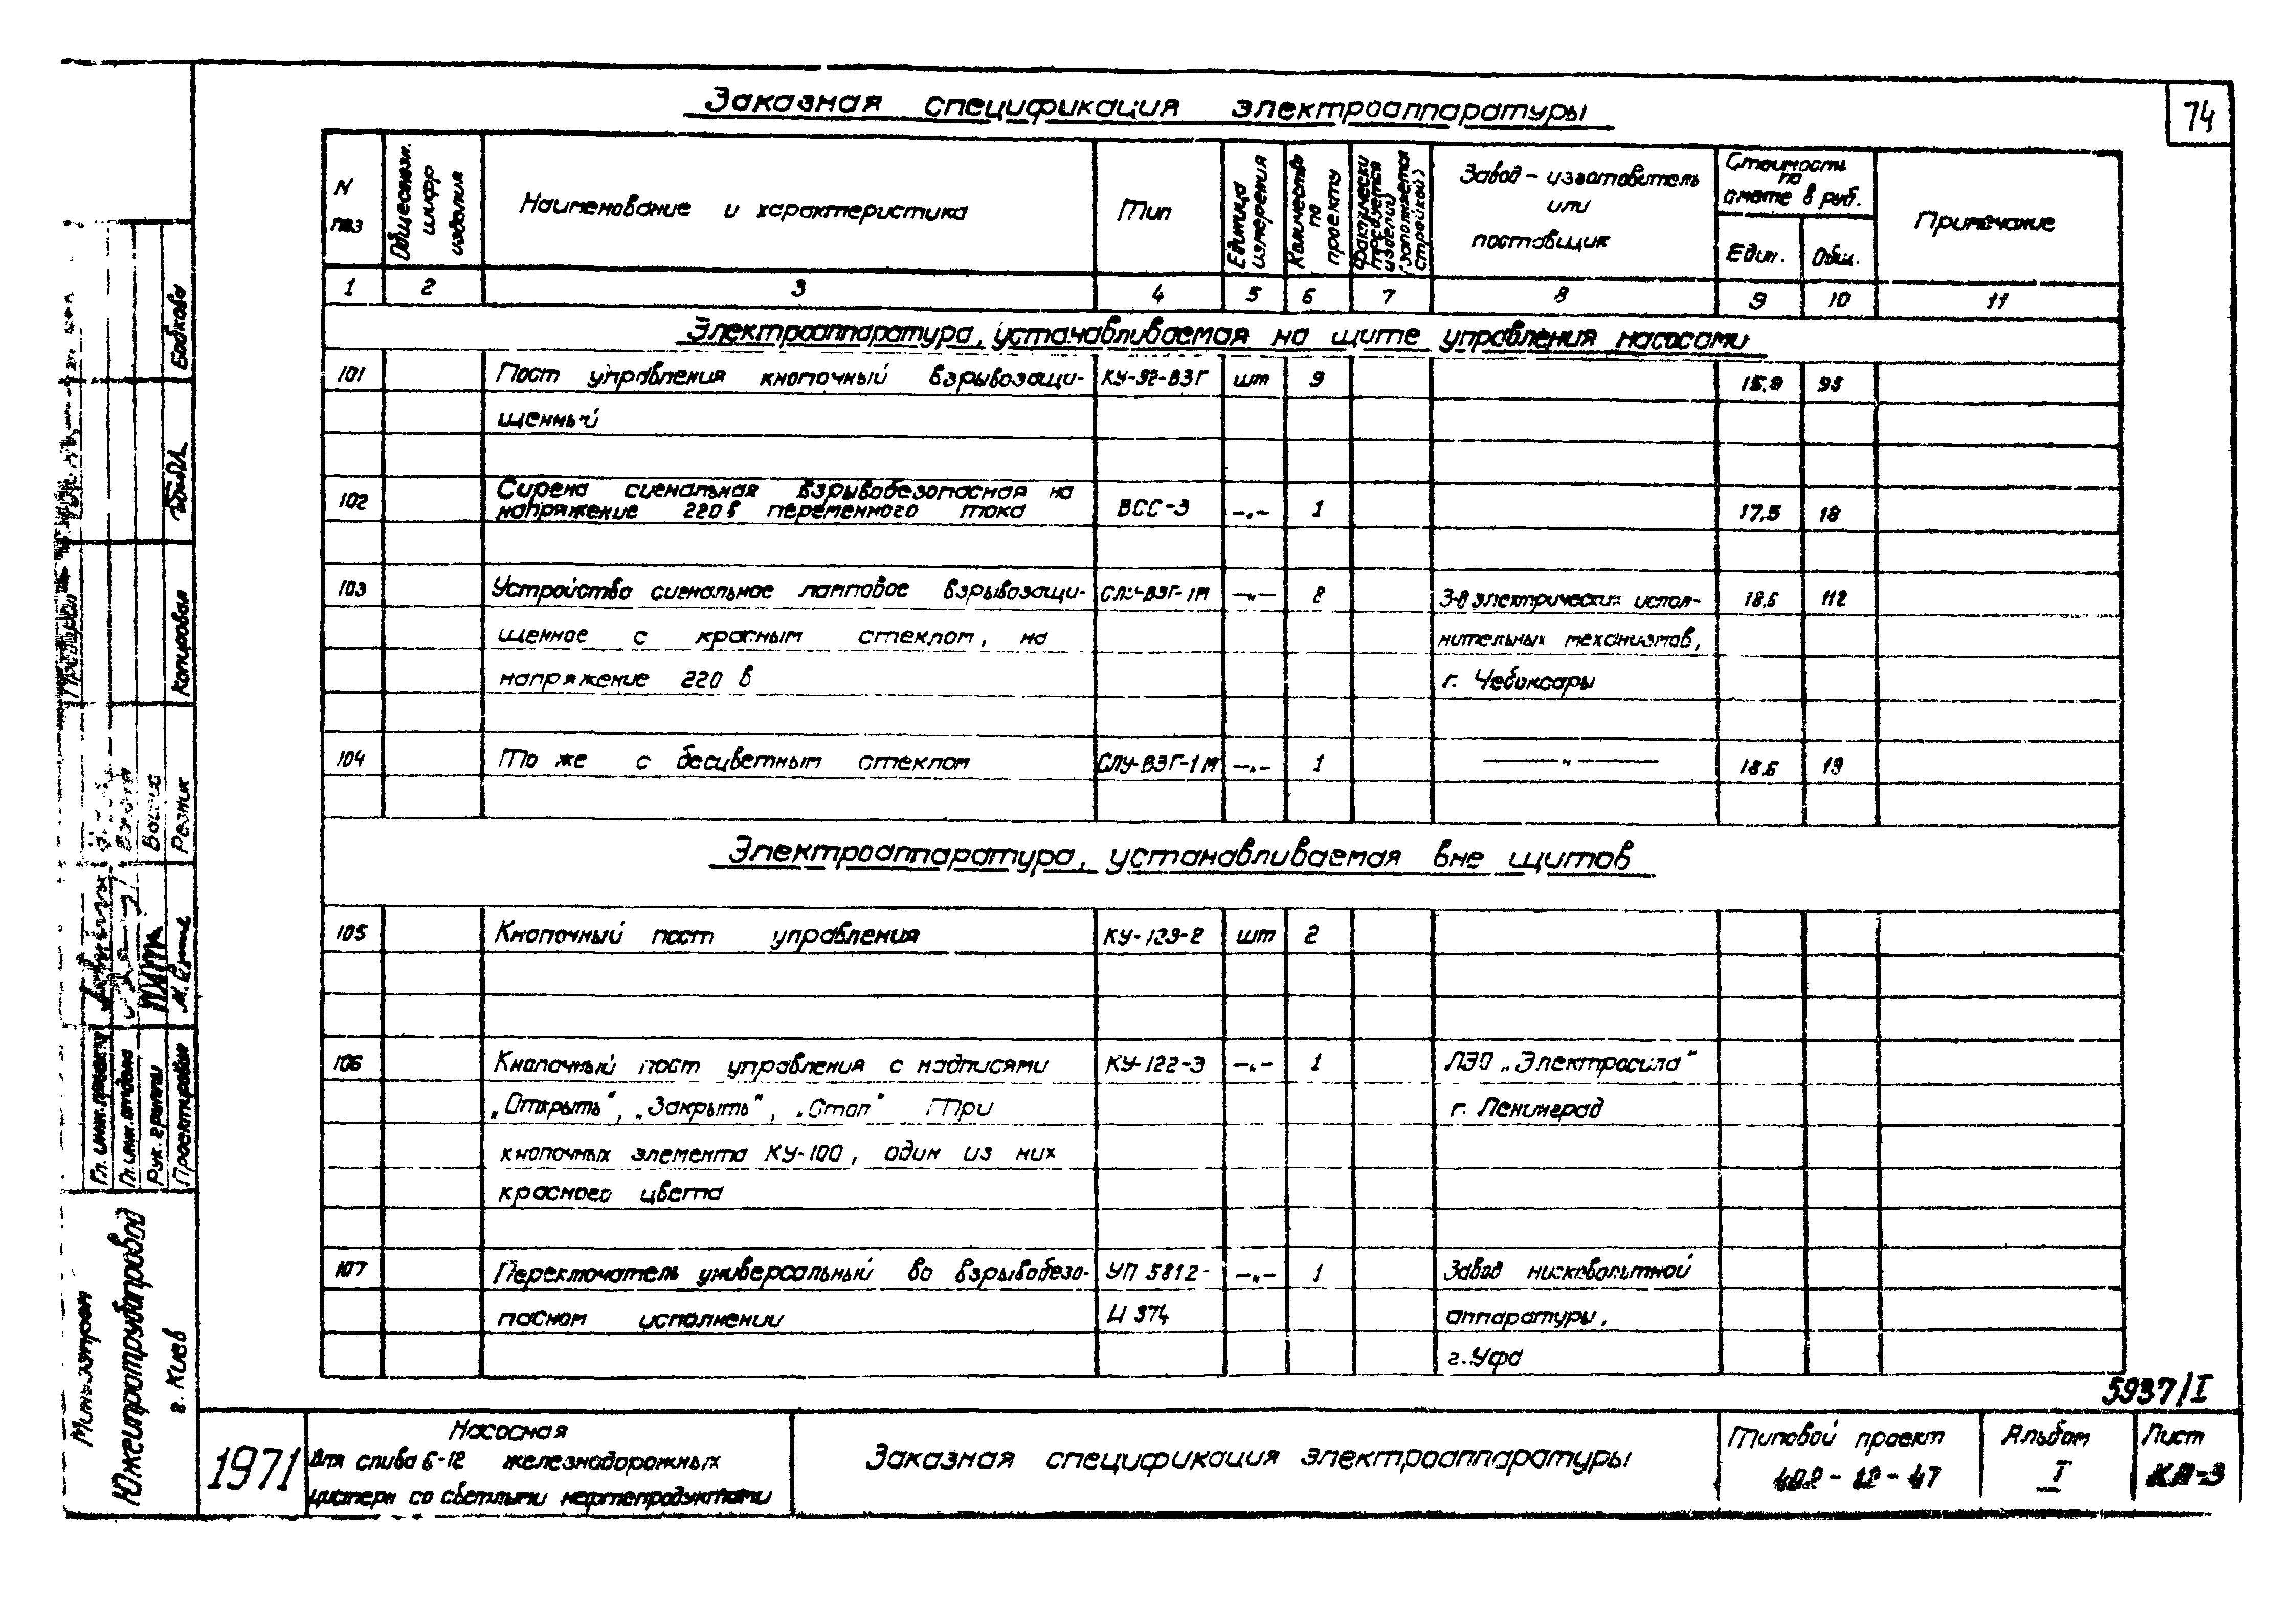 74
Заказная спецификация электроаппаратуры
N поз
Общесоюзн. шифр изделия
Наименование и характеристика
Тип
Единица измерения
Количество по проекту
Фактически требуется изделий (заполняется стройкой)
Завод - изготовитель или поставщик
Стоимость по смете в руб.
Един.
Общ.
Примечание
1 2 3 4 5 6 7 8 9 10 11
Электроаппаратура, устанавливаемая на щите управления насосами
101 Пост управления кнопочный взрывозащи- КУ-92-ВЗГ шт 9 15.8 95
щенный
102 Сирена сигнальная взрывобезопасная на
напряжение 220 в переменного тока ВСС-3 -"- 1 17,5 18
103 Устройство сигнальное ламповое взрывозащи- СЛУ-ВЗГ-1М -"- 8 З-д электрических испол- 18,6 112
щенное с красным стеклом, на нительных механизмов,
напряжение 220 в г. Чебоксары
104 То же с бесцветным стеклом СЛУ-ВЗГ-1М -"- 1 -"- 18.6 19
Электроаппаратура, устанавливаемая вне щитов
105 Кнопочный пост управления КУ-123-2 шт 2
106 Кнопочный пост управления с надписями КУ-122-3 -"- 1 ЛЭО „Электросила"
„Открыть", „Закрыть", „Стоп" Три г. Ленинград
кнопочных элемента КУ-100, один из них
красного цвета
107 Переключатель универсальный во взрывобезо- УП 5812- -"- 1 Завод низковольтной
пасном исполнении 374 аппаратуры,
г. Уфа
5937/I
1971
Насосная
для слива 6-12 железнодорожных
цистерн со светлыми нефтепродуктами
Заказная спецификация электроаппаратуры
Типовой проект
402-12-47
Альбом
I
Лист
Бабкова
Копировал
Резник
Гл. инж. проекта
Гл. инж. отдела
Рук. группы
Проектировал
Южгипротрубопровод
г. Киев